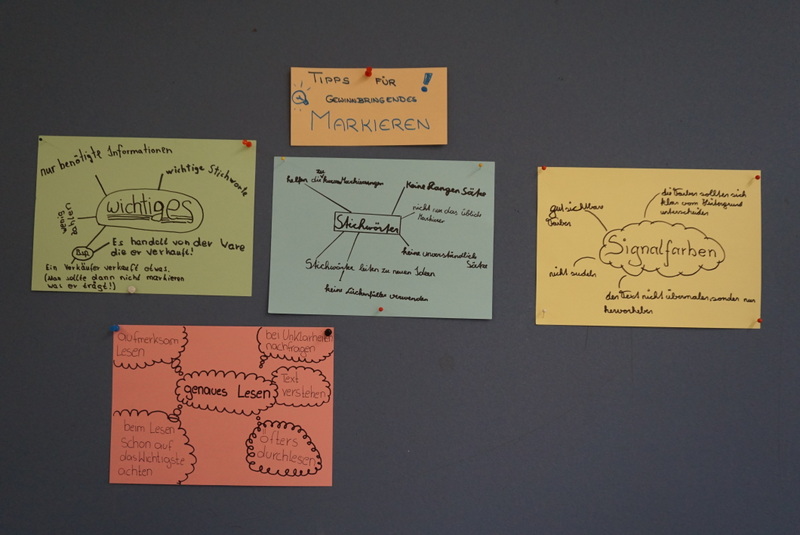 TIPPS FÜR !
GEWINNBRINGENDES
MARKIEREN
nur benötigte Informationen
wichtige Stichworte
wichtiges
wenig
Bsp
Es handelt von der Ware
die er verkauft!
Ein Verkäufer verkauft etwas.
(Man sollte dann nicht markieren
was er trägt!)
helfen
Keine langen Sätze
nicht
Stichwörter
keine unverständlich
Sätze
Stichwörter leiten zu neuen Ideen
keine Lückenfüller verwenden
gut sichtbare
Farben
die Farben sollten sich
klar vom Hintergrund
unterscheiden
Signalfarben
nicht
den Text nicht übermalen, sondern nur
hervorheben
aufmerksam
Lesen
bei Unklarheiten
nachfragen
genaues Lesen
Text
verstehen
beim Lesen
schon auf
das Wichtigste
achten
öfters
durchlesen